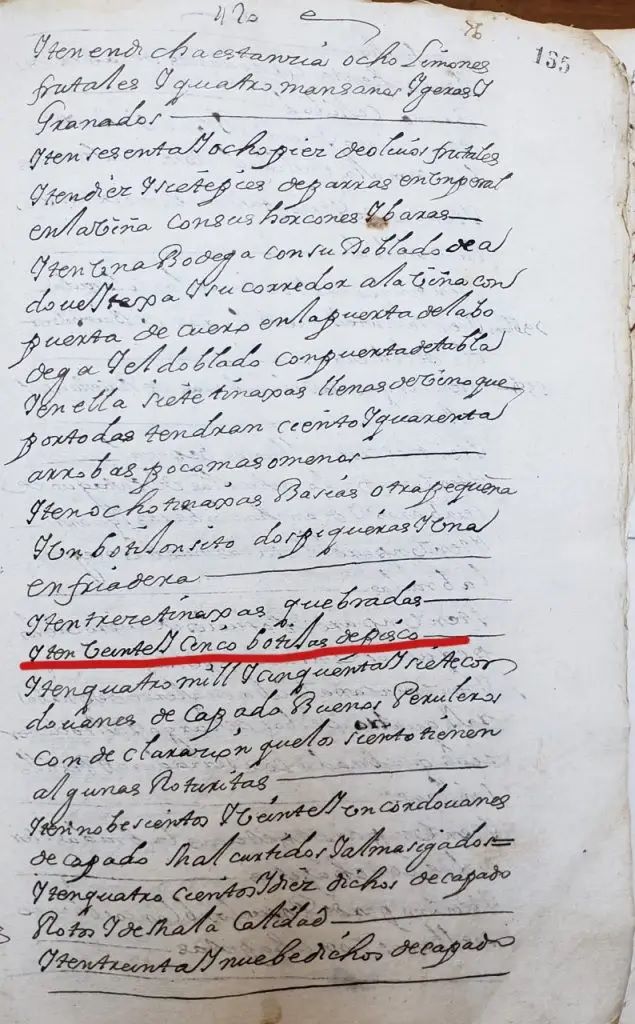 420
135
Yten en dicha estanzia ocho Limones
frutales Y quatro mansanos Ygeras Y
Granados
Yten sesenta Y ocho piez de oliuos frutales
Yten diez Y siete pies de parras en Un peral
en la Viña con sus horcones Y baras
Yten Una Bodega con su Doblado de a
doue Y texa Y su corredor a la Viña con
puerta de cuero en la puerta de la bo
dega Y el doblado con puerta de tabla
Y en ella siete tinaxas llenas de Vino que
por todas tendran ciento Y quarenta
arrobas poco mas o menos
Yten ocho tinaxas Basias otra pequeña
Y Un botilonsito dos piqueras Y Una
enfriadera
Yten trece tinaxas quebradas
Yten Veinte Y Cinco botilas de pisco
Yten quatro mill Y cinquenta Y siete cor
douanes de Capado Buenos Peruleros
con declarazion que los siento tienen
algunas Roturitas
Yten nobescientos Y Veinte Y Un cordouanes
de capado Mal curtidos Y almasigados
Yten quatro cientos Y diez dichos de capado
Rotos Y de Mala Calidad
Yten treinta Y nuebe dichos de capado